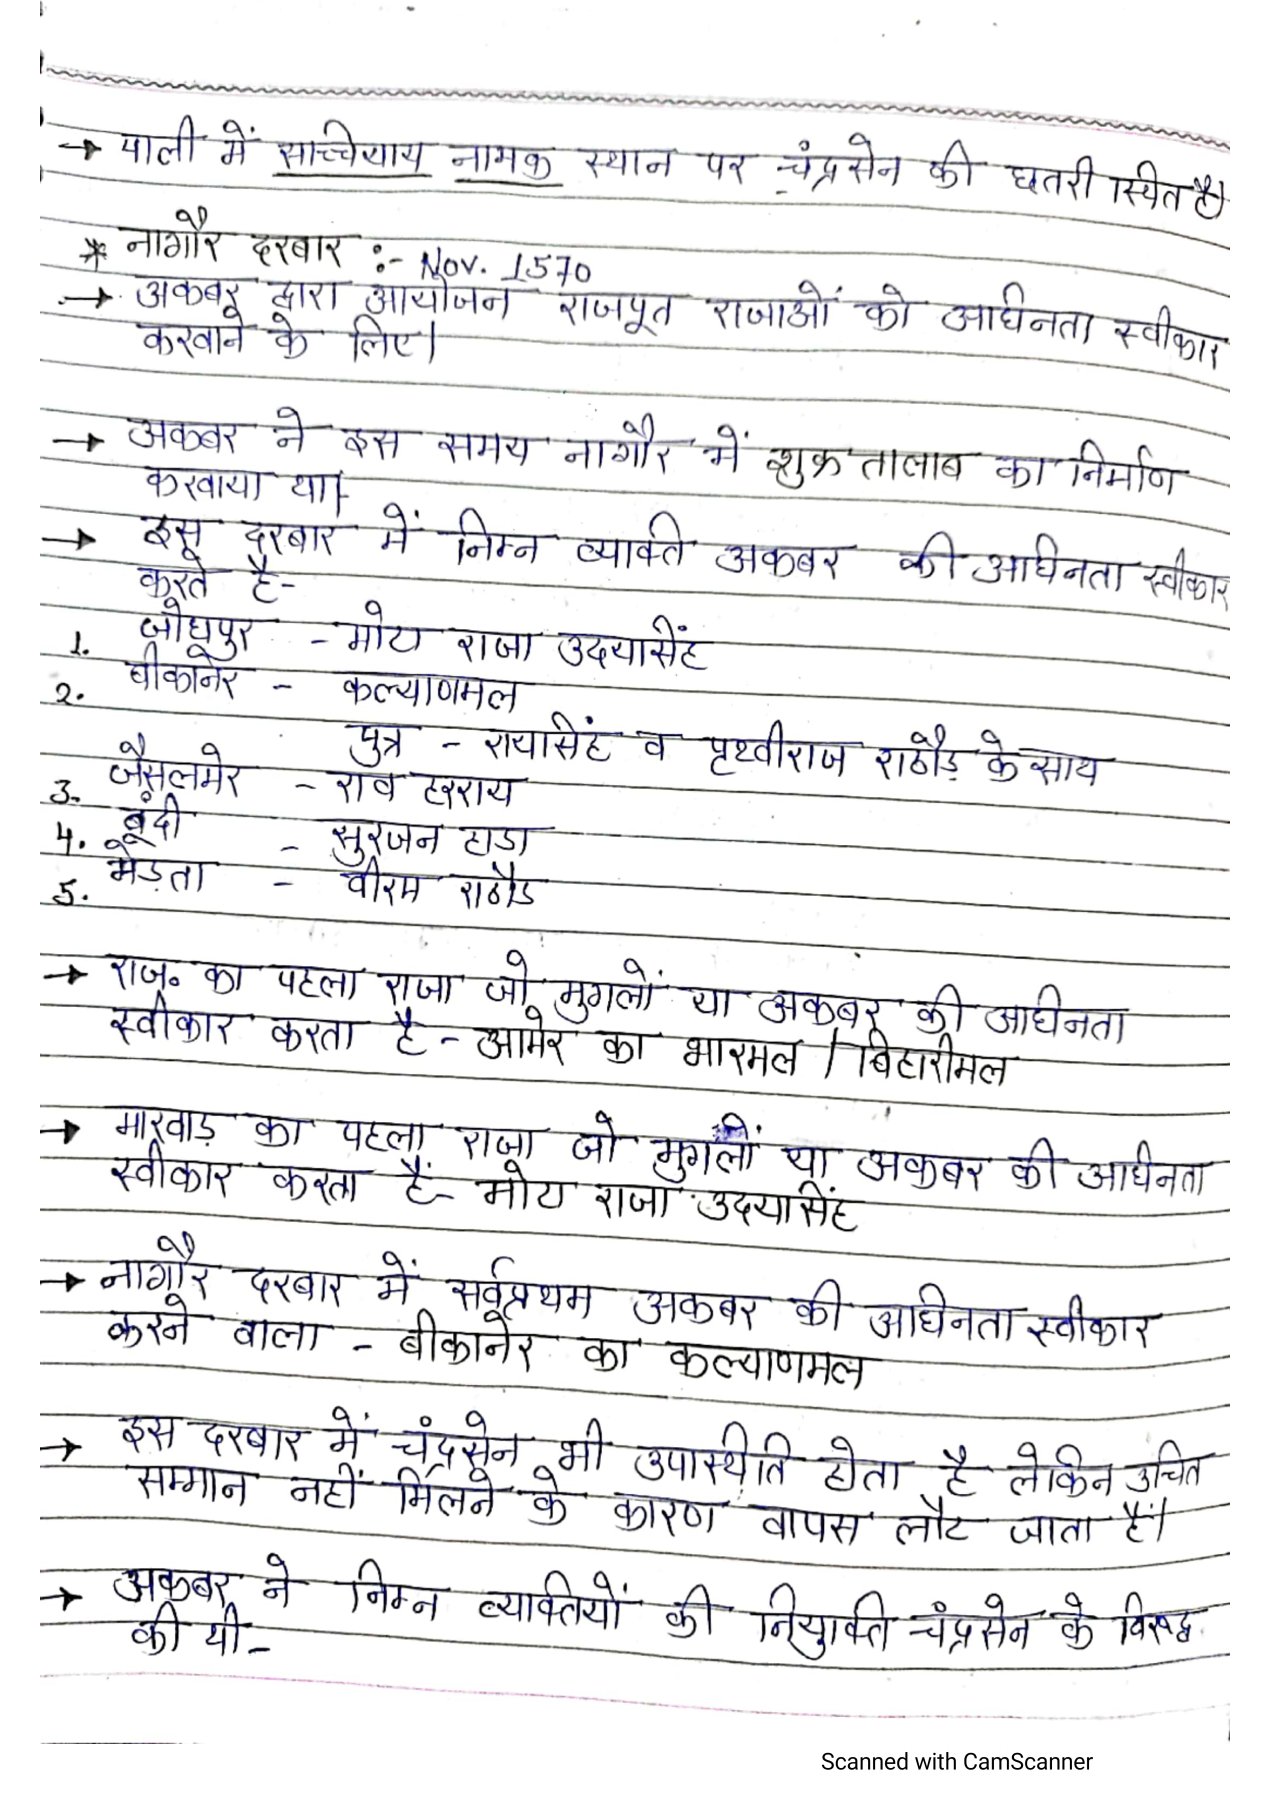 → पाली में साच्चियाय नामक स्थान पर चंद्रसेन की छतरी स्थित है।
* नागौर दरबार :- Nov. 1570
→ अकबर द्वारा आयोजन राजपूत राजाओं को अधिनता स्वीकार
करवाने के लिए।
→ अकबर ने इस समय नागौर में शुक्र तालाब का निर्माण
करवाया था।
→ इस दरबार में निम्न व्यक्ति अकबर की अधिनता स्वीकार
करते है-
1. जोधपुर - मोटा राजा उदयसिंह
2. बीकानेर - कल्याणमल
पुत्र - रायसिंह व पृथ्वीराज राठौड़ के साथ
3. जैसलमेर - राव हरराय
4. बूंदी - सुरजन हाडा
5. मेड़ता - वीरम राठौड
→ राज. का पहला राजा जो मुगलों या अकबर की अधिनता
स्वीकार करता है - आमेर का भारमल / बिहारीमल
→ मारवाड़ का पहला राजा जो मुगलों या अकबर की अधिनता
स्वीकार करता है - मोटा राजा उदयसिंह
→ नागौर दरबार में सर्वप्रथम अकबर की अधिनता स्वीकार
करने वाला - बीकानेर का कल्याणमल
→ इस दरबार में चंद्रसेन भी उपस्थिति होता है लेकिन उचित
सम्मान नहीं मिलने के कारण वापस लौट जाता हैं।
→ अकबर ने निम्न व्यक्तियों की नियुक्ति चंद्रसेन के विरुद्ध
की थी -
Scanned with CamScanner